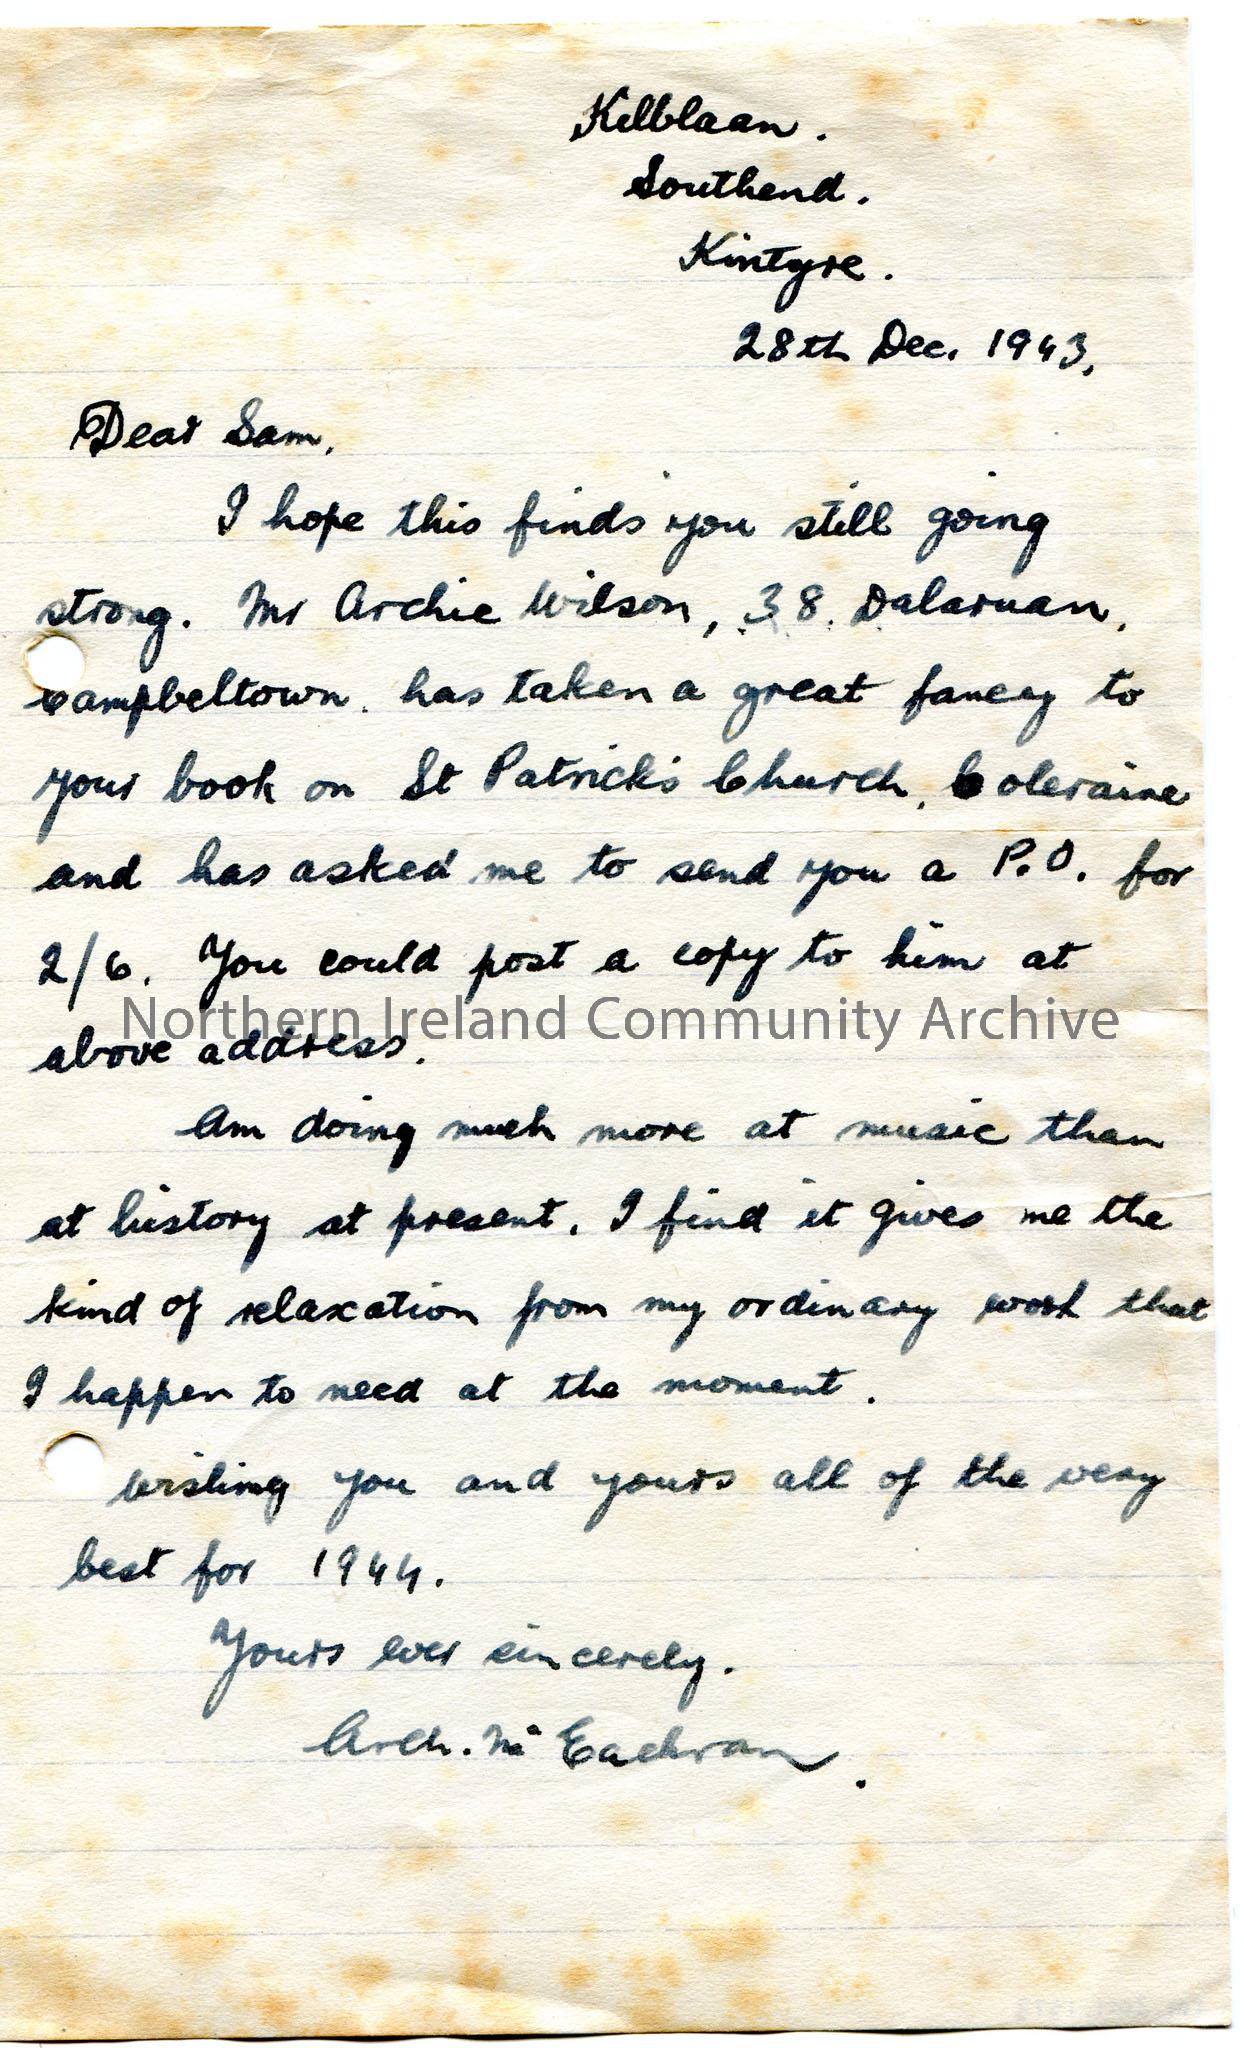 Kilblaan.
Southend.
Kintyre.
28th Dec. 1943,
Dear Sam,
I hope this finds you still going
strong. Mr Archie Wilson, 38. Dalaruan,
Campbeltown. has taken a great fancy to
your book on St Patrick's Church, Coleraine
and has asked me to send you a P.O. for
2/6. You could post a copy to him at
Northern Ireland Community Archive
above address.
Am doing much more at music than
at history at present. I find it gives me the
kind of relaxation from my ordinary work that
I happen to need at the moment.
Wishing you and yours all of the very
best for 1944.
Yours ever sincerely.
Arch. Mc Eachran.